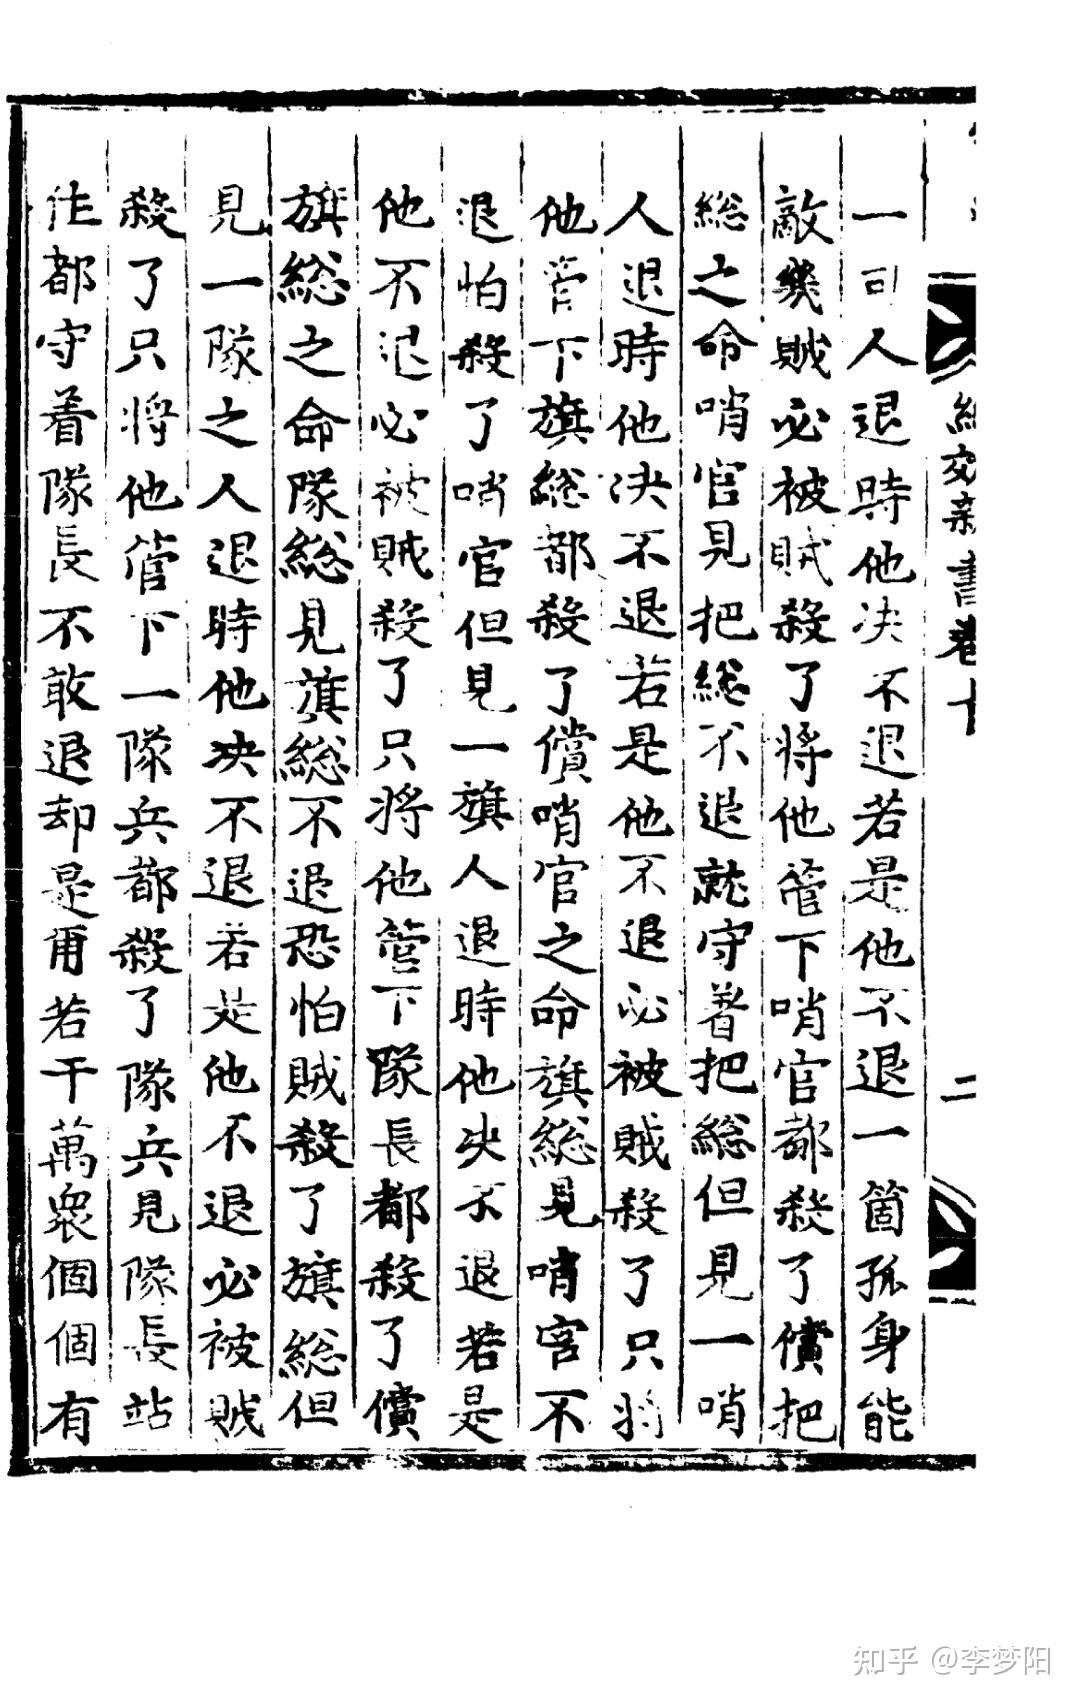 紀效新書卷十
二
一司人退時他决不退若是他不退一箇孤身能
敵幾賊必被賊殺了將他管下哨官都殺了償把
總之命哨官見把總不退就守着把總但見一哨
人退時他决不退若是他不退必被賊殺了只將
他管下旗總都殺了償哨官之命旗總見哨官不
退怕殺了哨官但見一旗人退時他决不退若是
他不退必被賊殺了只將他管下隊長都殺了償
旗總之命隊總見旗總不退恐怕賊殺了旗總但
見一隊之人退時他决不退若是他不退必被賊
殺了只將他管下一隊兵都殺了隊兵見隊長站
住都守着隊長不敢退却是甭若干萬衆個個有
知乎 @李梦阳